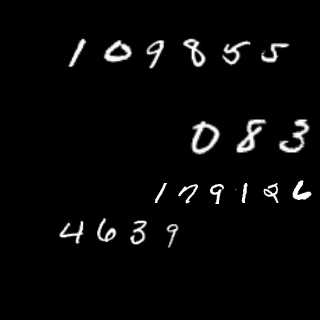 109855
083
179186
4639